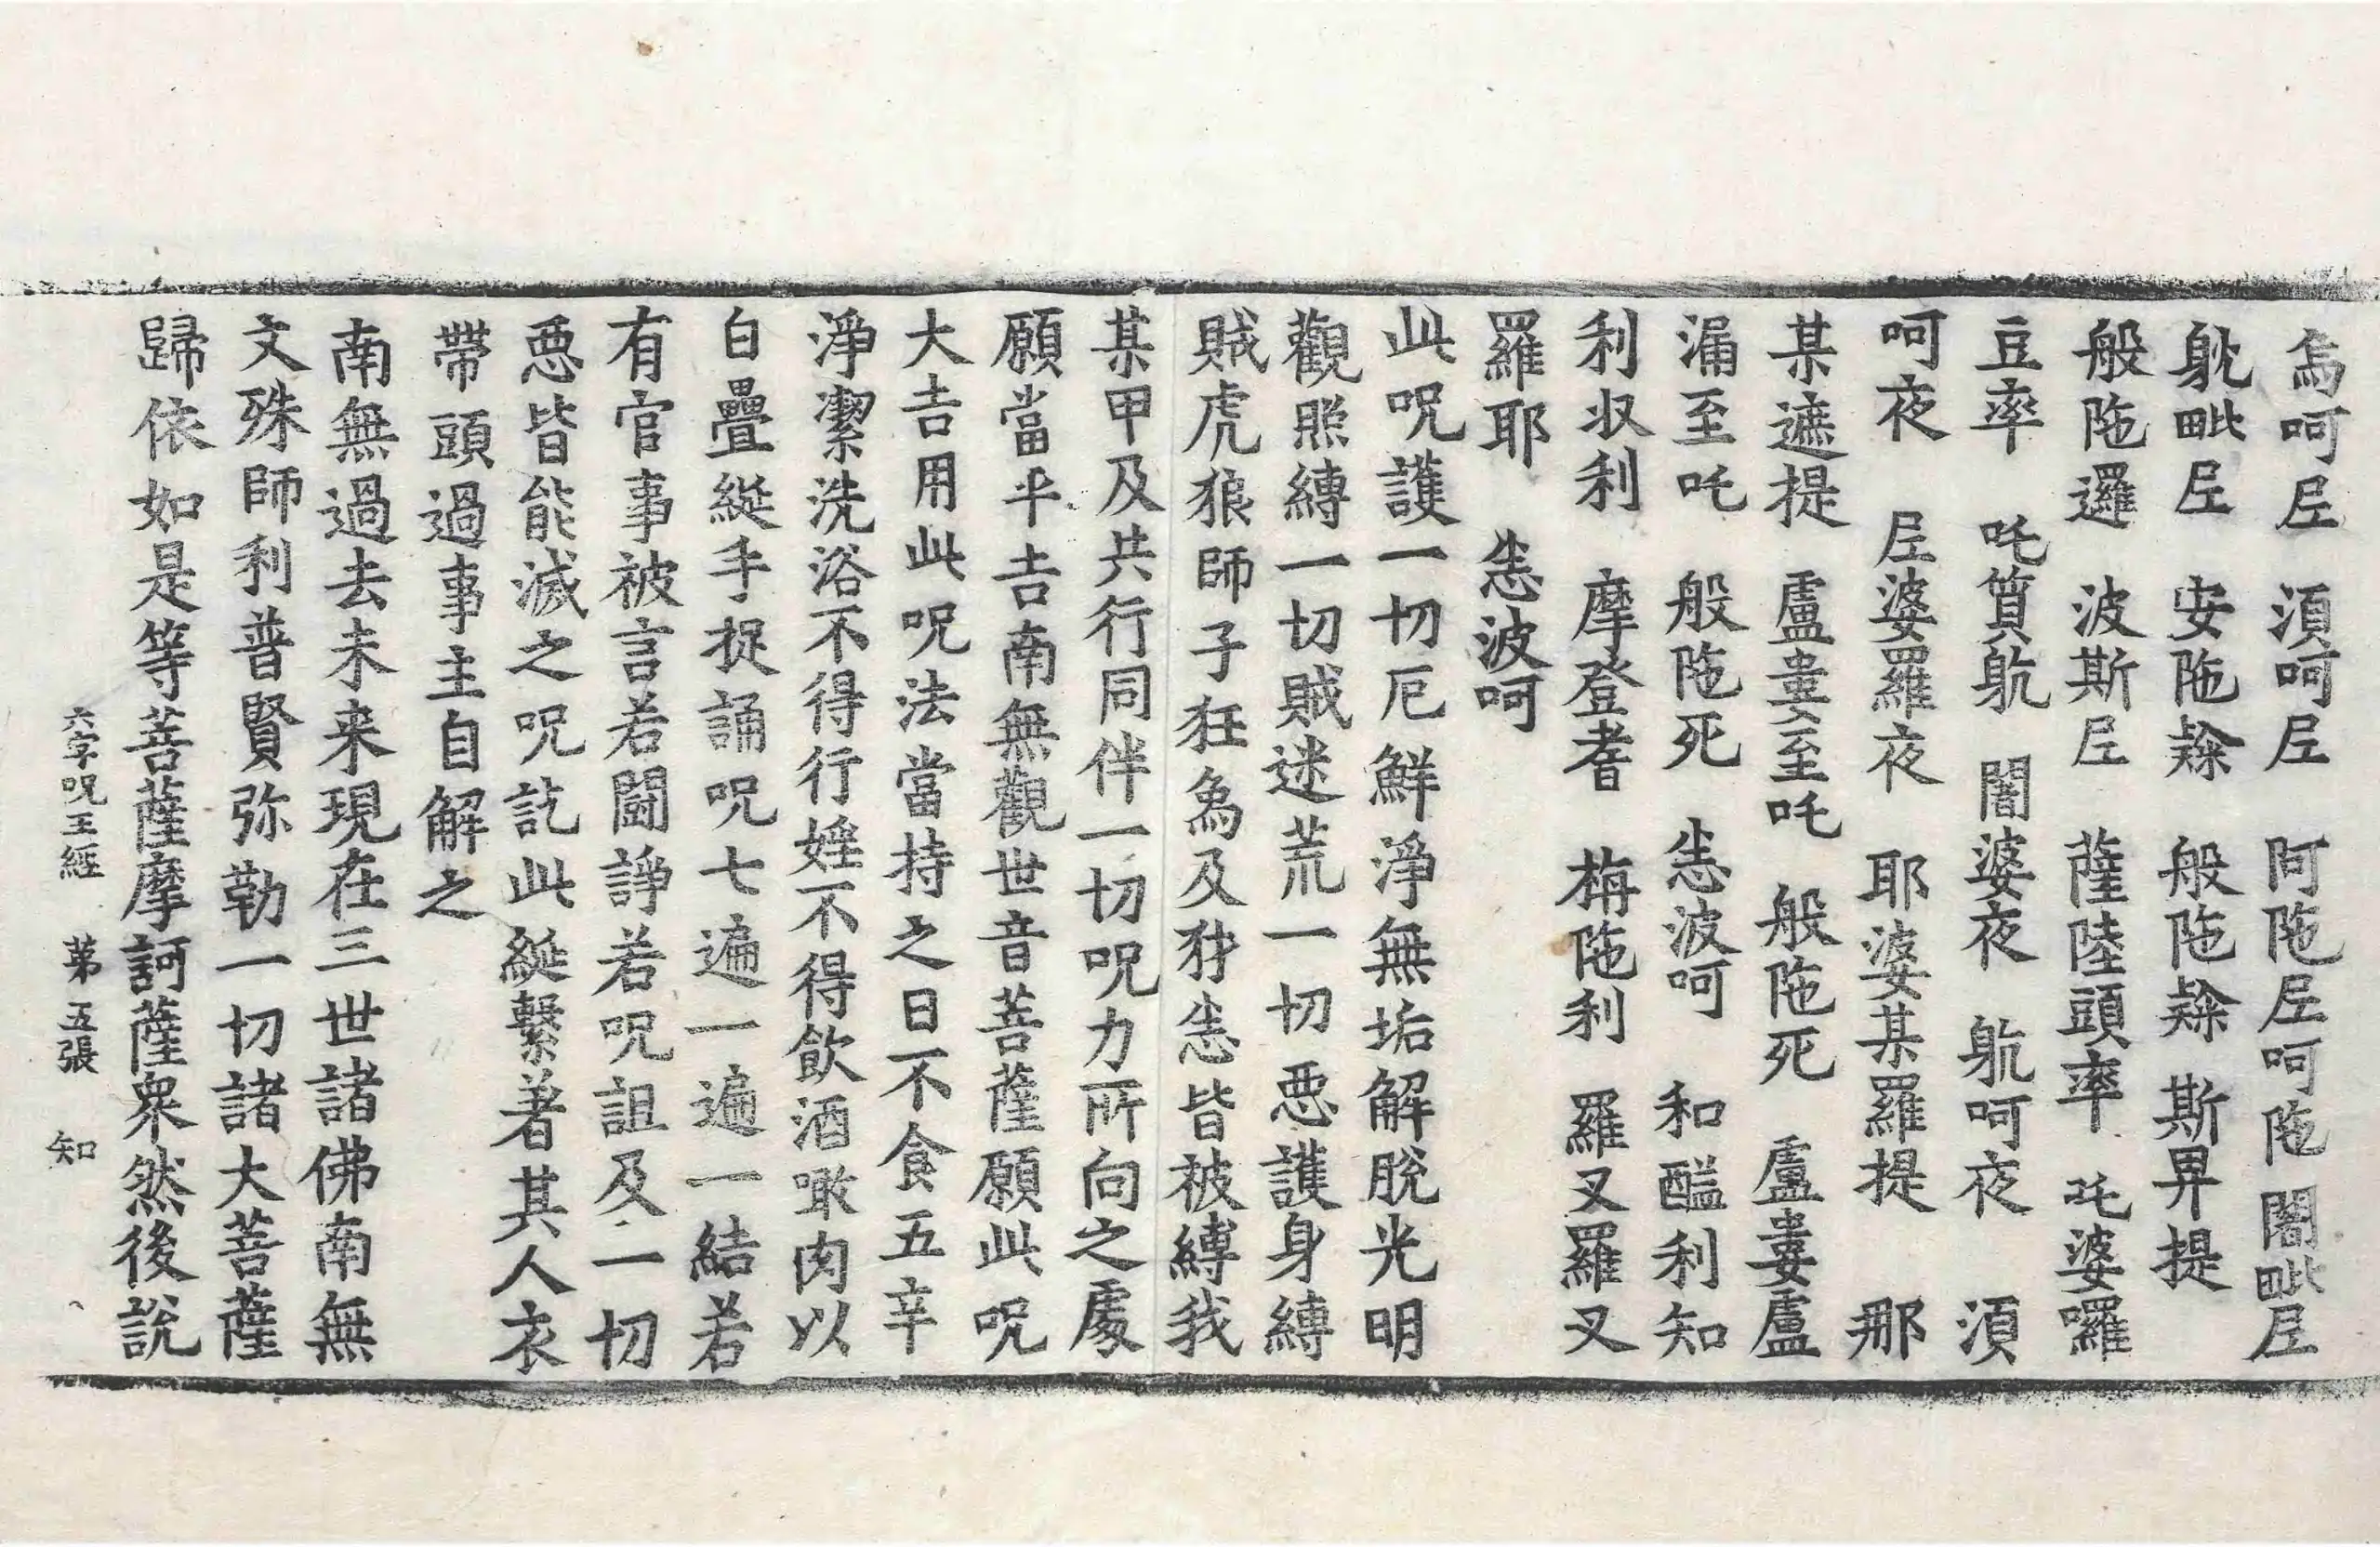 烏呵𡰱 須呵𡰱 阿陁𡰱呵陁 闍毗𡰱
躭毗𡰱 安陁㱔 般陁㱔 斯畀提
般陁邏 波斯𡰱 薩陸頭率 吒婆囉
豆率 吒質躭 闍婆夜 躭呵夜 須
呵夜 𡰱婆羅夜 耶婆某羅提 那
某遮提 盧婁至吒 般陁死 盧婁盧
漏至吒 般陁死 恙波呵 和醯利知
利収利 摩登耆 栴陁利 羅叉羅叉
羅耶 恙波呵
此呪護一切厄鮮淨無垢解脫光明
觀照縛一切賊迷荒一切惡護身縛
賊虎狼師子狂為及犲恙皆被縛我
某甲及共行同伴一切呪力所向之處
願當平吉南無觀世音菩薩願此呪
大吉用此呪法當持之日不食五辛
淨潔洗浴不得行婬不得飲酒噉肉以
白疊綖手捉誦呪七遍一遍一結若
有官事被言若鬪諍若呪詛及一切
惡皆能滅之呪訖此綖繫著其人衣
帶頭過事主自解之
南無過去未来現在三世諸佛南無
文殊師利普賢弥勒一切諸大菩薩
歸依如是等菩薩摩訶薩衆然後説
六字呪王經 第五張 知